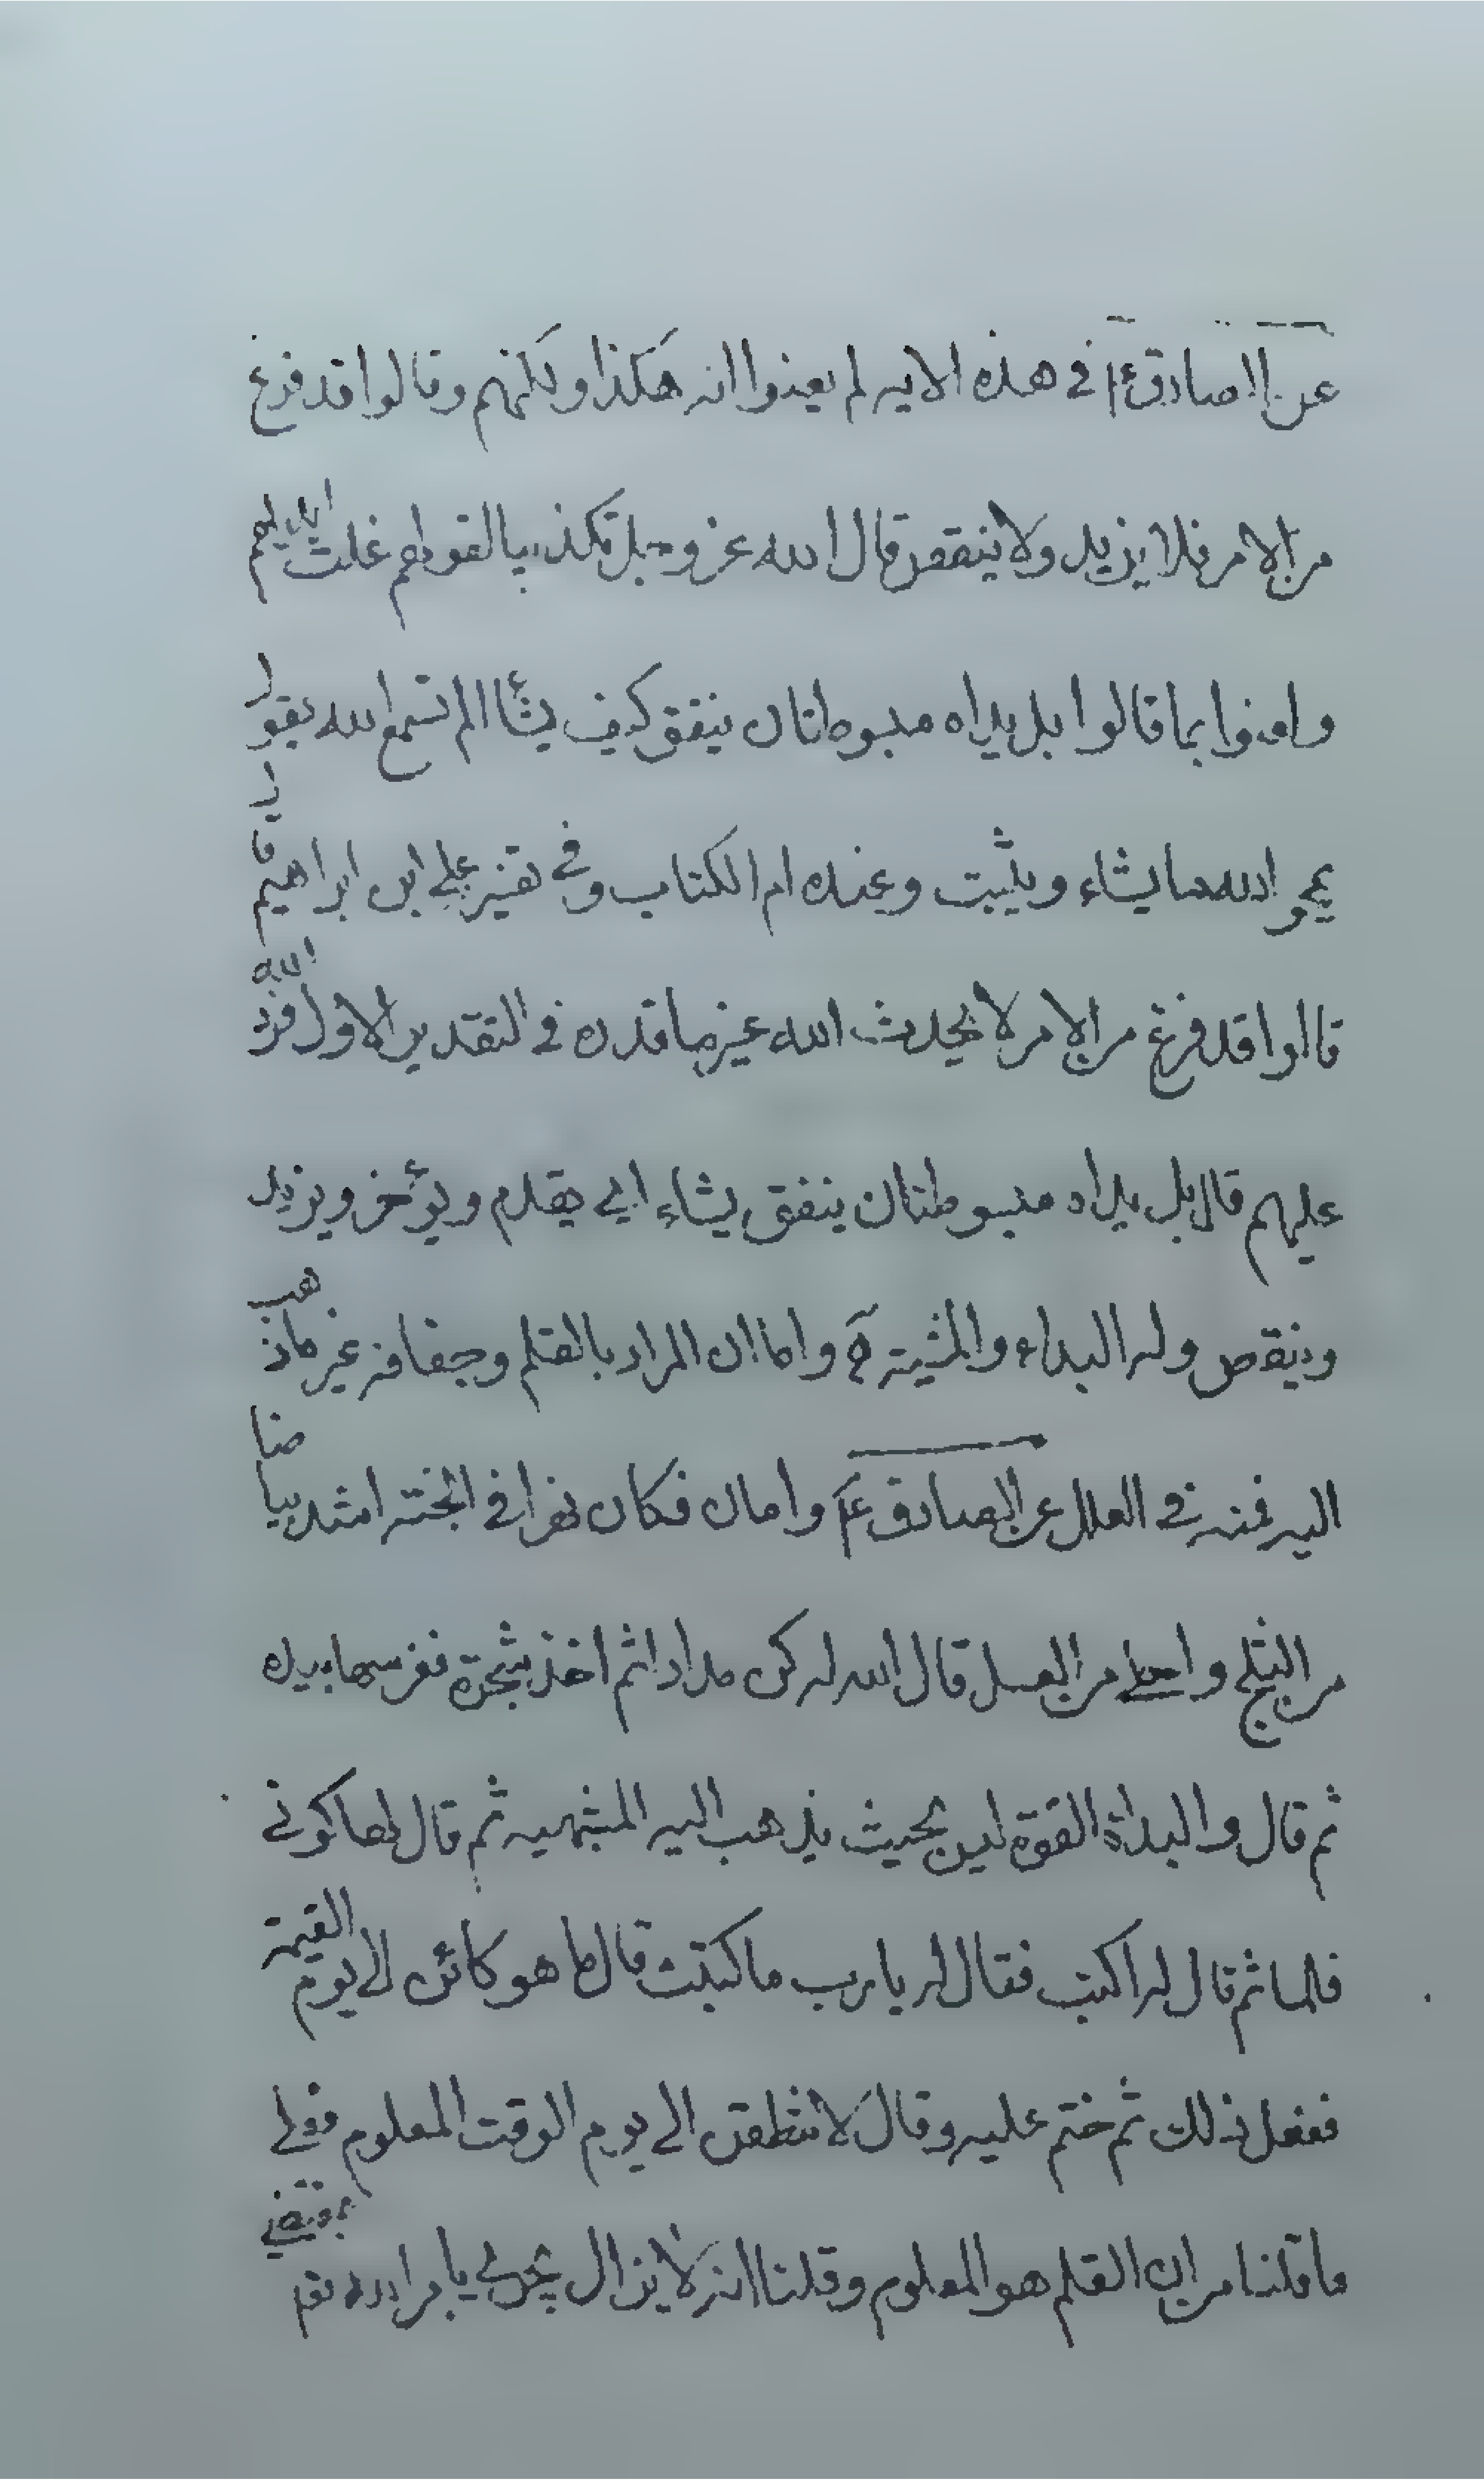 عن الصادق ع في هذه الايه لم يعنوا انه هكذا ولكنهم وقالوا قد فرغ
من الامر فلا يزيد ولا ينقص قال الله عز وجل تكذيبا لقولهم غلت ايديهم
ولعنوا بما قالوا بل يداه مبسوطتان ينفق كيف يشأ الم تسمع الله يقول
يمحو الله ما يشاء ويثبت وعنده ام الكتاب وفي تفسير علي ابن ابراهيم قال
قالوا قد فرغ من الامر لا يحدث الله غير ما قدره في التقدير الاول فرد الله
عليهم قال بل يداه مبسوطتان ينفق يشاء اي يقدم ويؤخر ويزيد
وينقص وله البداء والمشية واما ان المراد بالقلم وجفافه غير ما ذهب
اليه فمنه في العلل عن الصادق ع واما ن فكان نهرا في الجنة اشد بياضا
من الثلج واحلى من العسل قال الله له كن مدادا ثم اخذ شجرة فغرسها بيده
ثم قال واليداة القوة ليس بحيث يذهب اليه المشبهيه ثم قال لها كوني
قلما ثم قال له اكتب فقال له يا رب ما كتبت قال ما هو كائن الى يوم القيمة
ففعل ذلك ثم ختم عليه وقال لا تنطقن الى يوم الوقت المعلوم فعلى
ما قلنا من ان القلم هو المعلوم وقلنا انه لا يزال يجري يا مراد